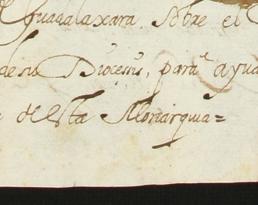 Guadalaxara sobre el
de su Diocesis, para ayu
de esta Monarquia=